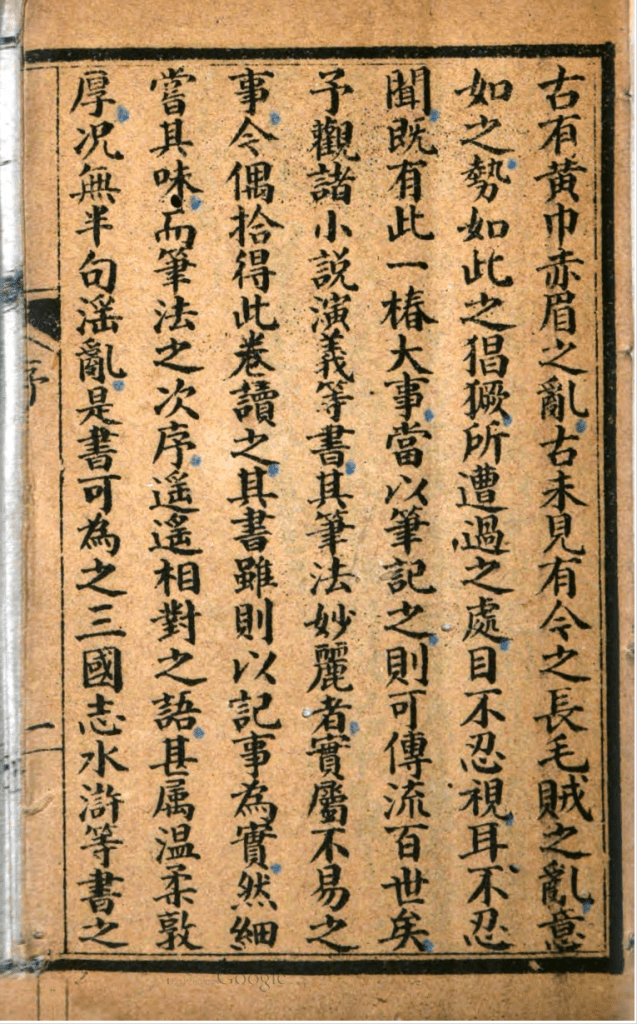 古有黄巾赤眉之亂古未見有令之長毛賊之亂意
如之勢如此之猖獗所遭過之處目不忍視耳不忍
聞既有此一樁大事當以筆記之則可傳流百世矣
予觀諸小說演義等書其筆法妙麗者實屬不易之
事令偶拾得此卷讀之其書雖則以記事為實然細
嘗其味而筆法之次序遥遥相對之語甚属温柔敦
厚况無半句滛亂是書可為之三國志水滸等書之
序
一
Google